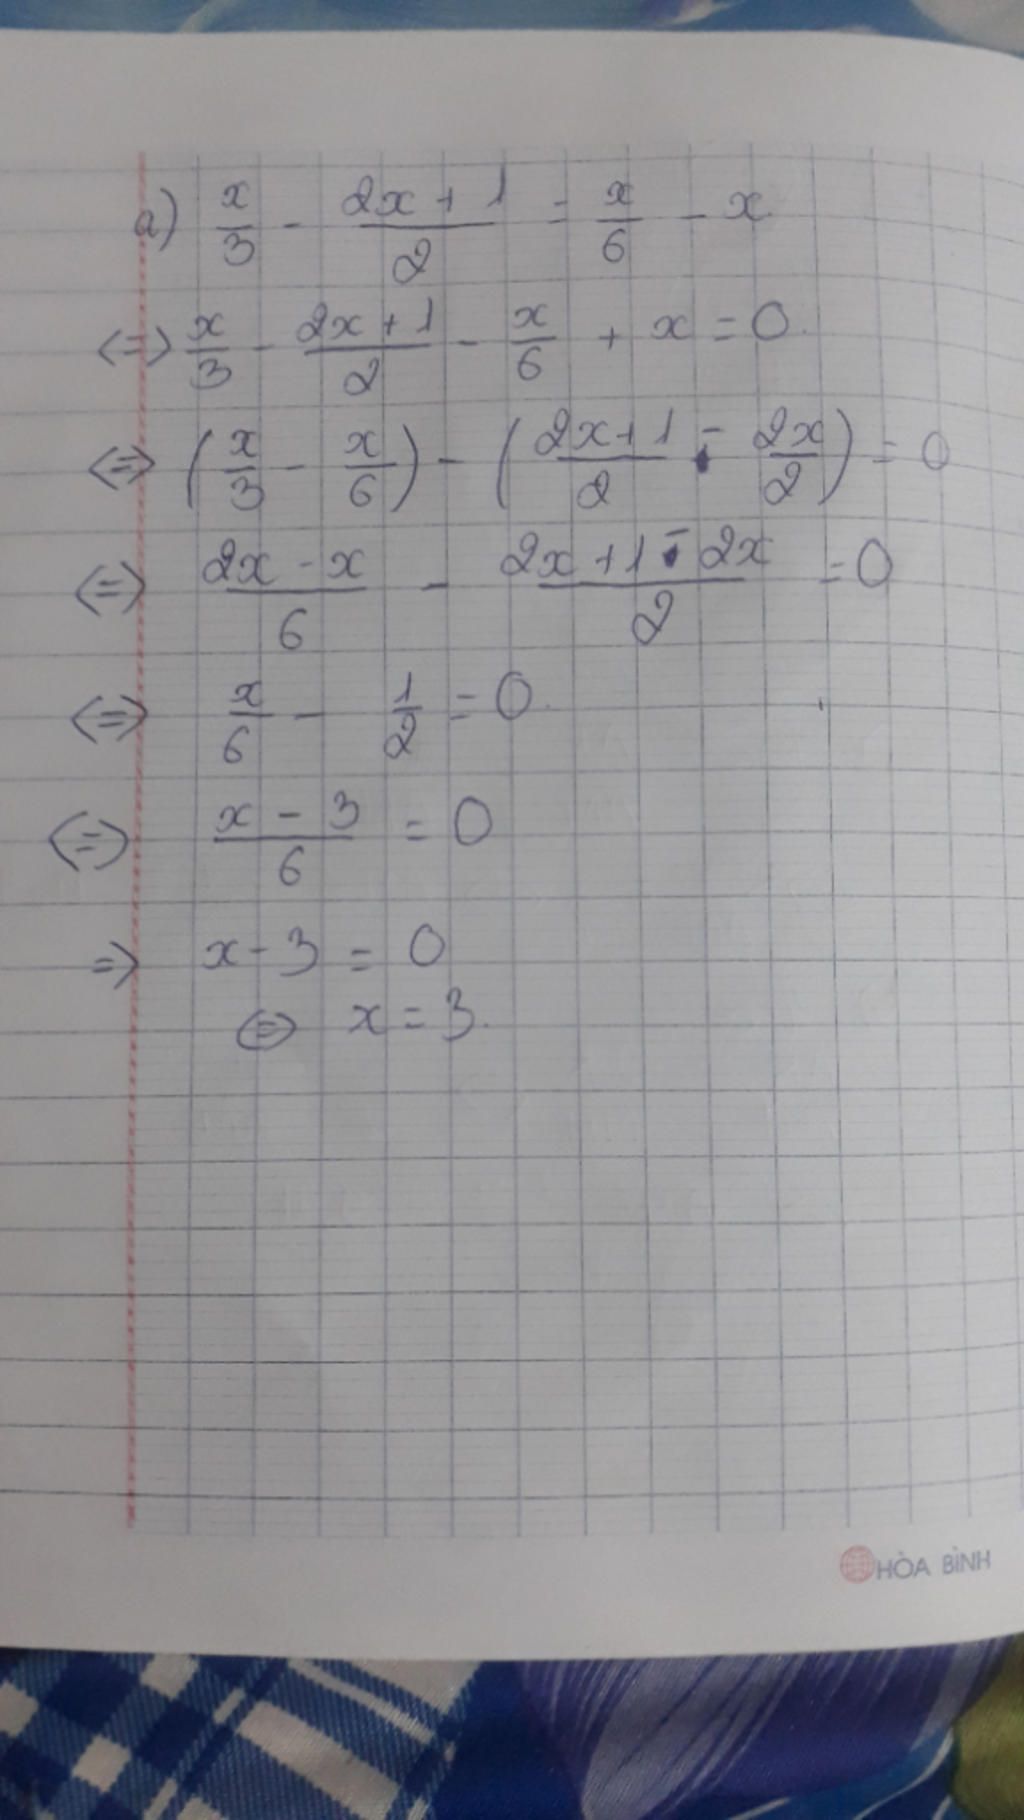 a) x/3 - (2x + 1)/2 = x/6 - x
<=> x/3 - (2x + 1)/2 - x/6 + x = 0.
<=> (x/3 - x/6) - ((2x+1)/2 - 2x/2) = 0
<=> (2x - x)/6 - (2x + 1 - 2x)/2 = 0
<=> x/6 - 1/2 = 0.
<=> (x - 3)/6 = 0
=> x - 3 = 0
<=> x = 3.
HÒA BÌNH